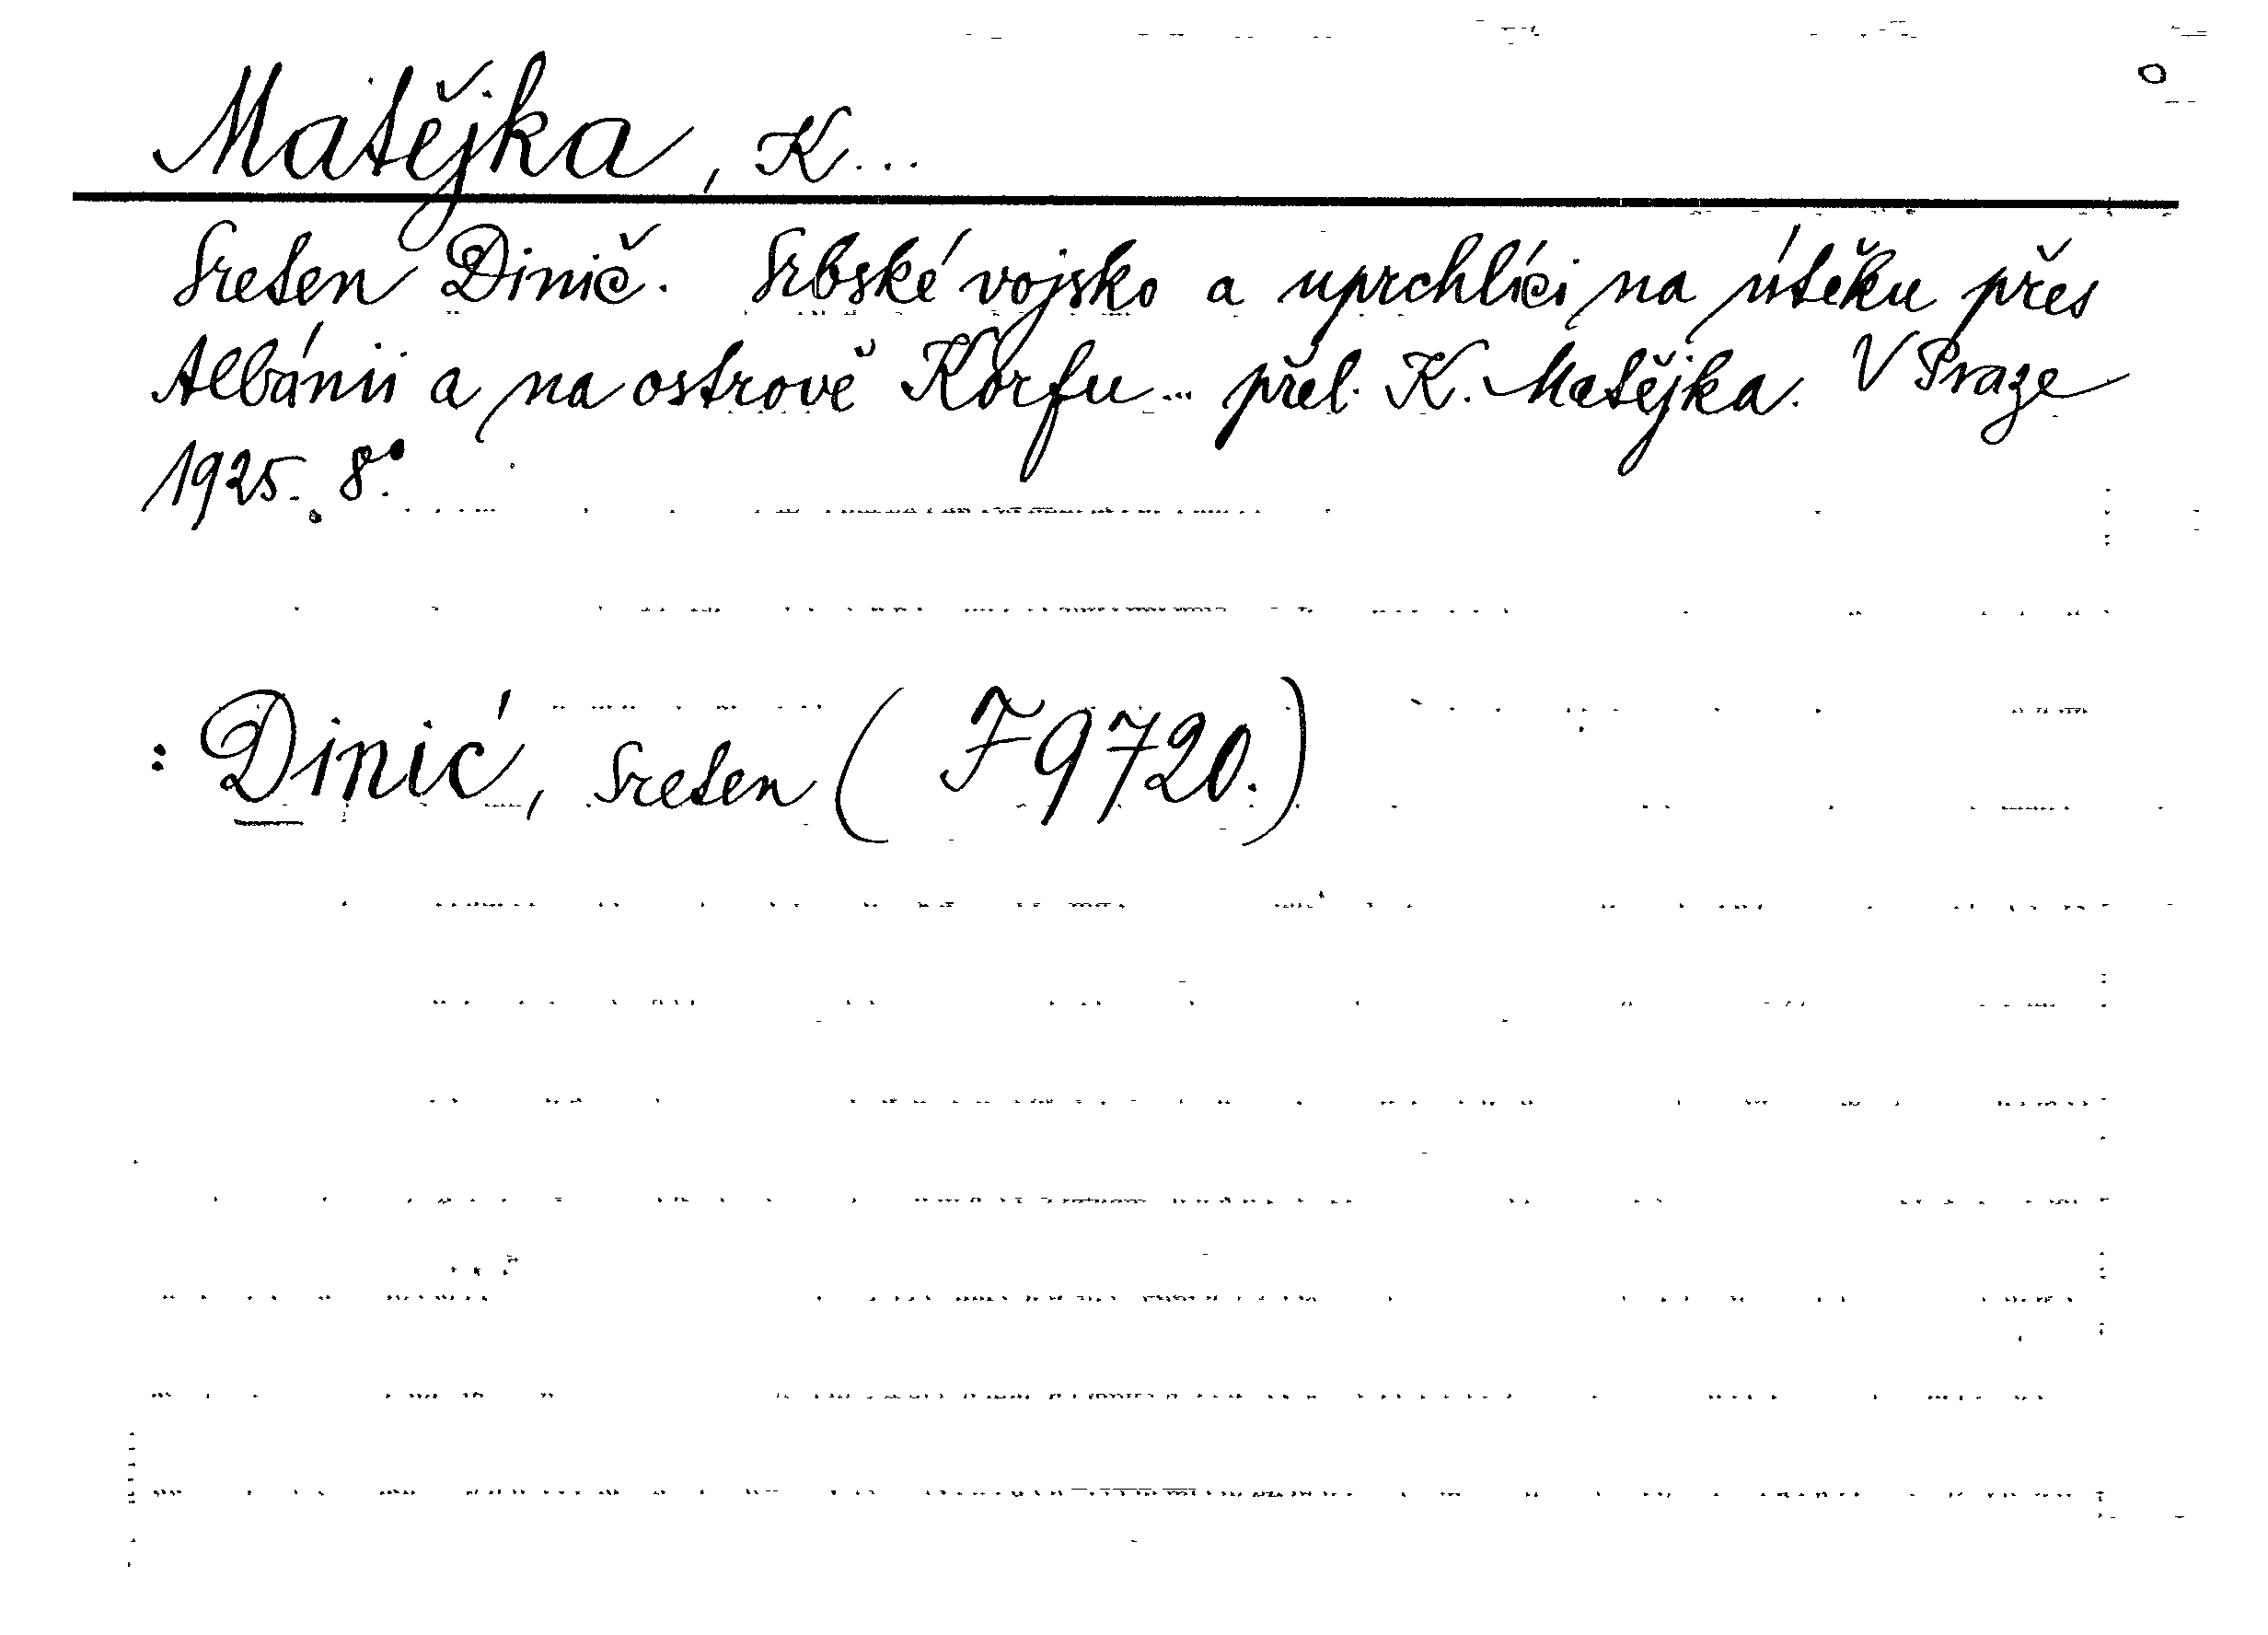 Matějka, K...
Sreten Dinič. Srbské vojsko a uprchlíci na útěku přes
Albánii a na ostrově Korfu... přel. K. Matějka. V Praze
1925. 8°.
: Dinić, Sreten (F 9720.)